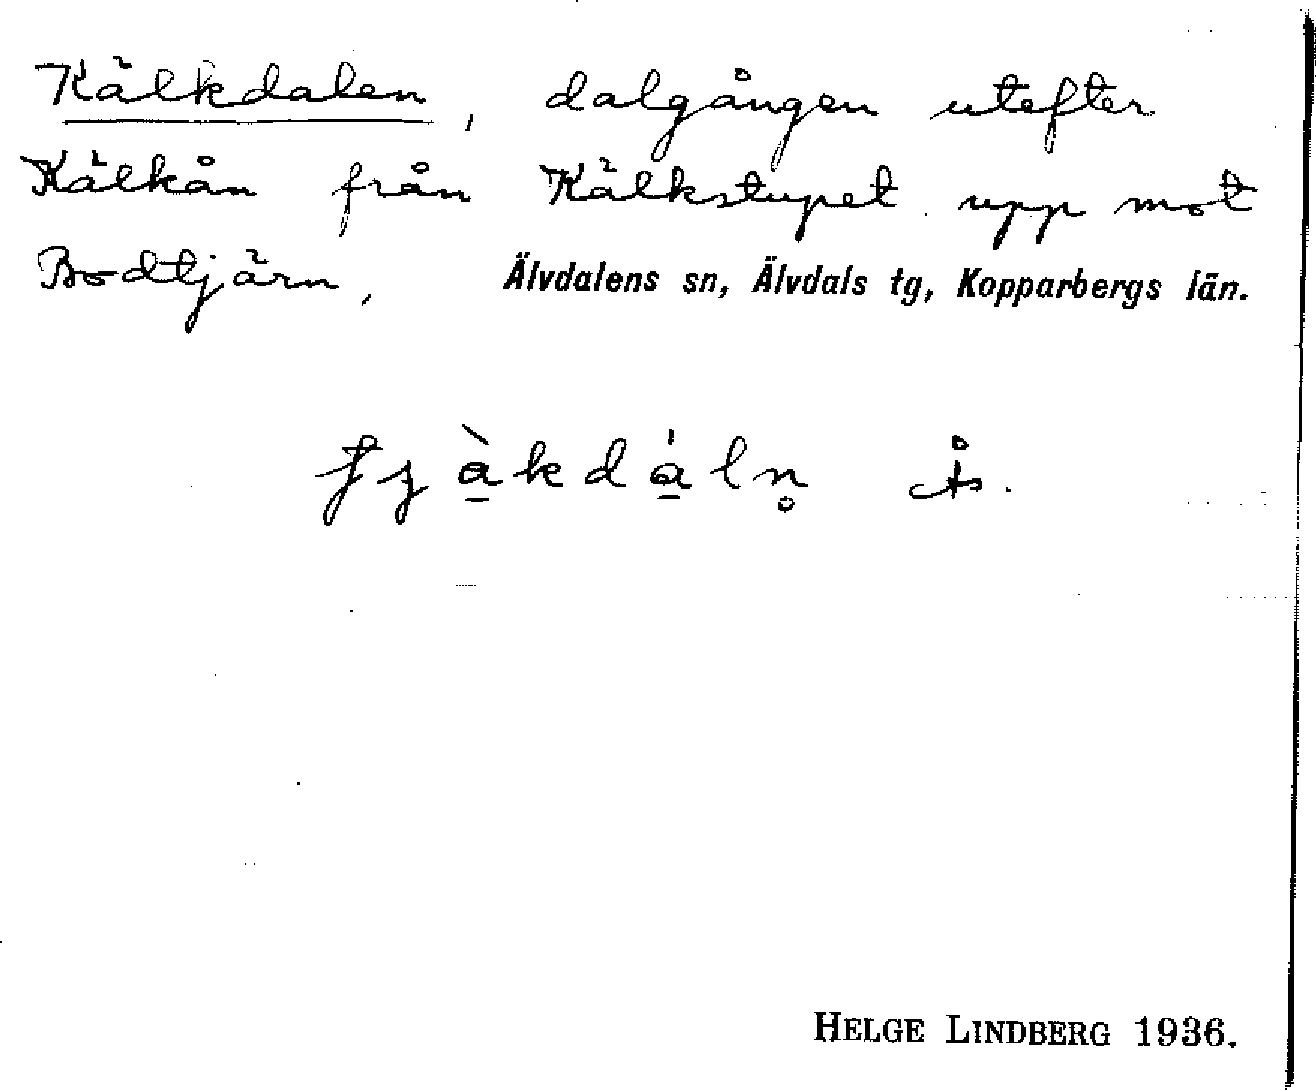 Kälkdalen, dalgången utefter
Kälkån från Kälkstupet upp mot
Bodtjärn, Älvdalens sn, Älvdals tg, Kopparbergs län.
HELGE LINDBERG 1936.